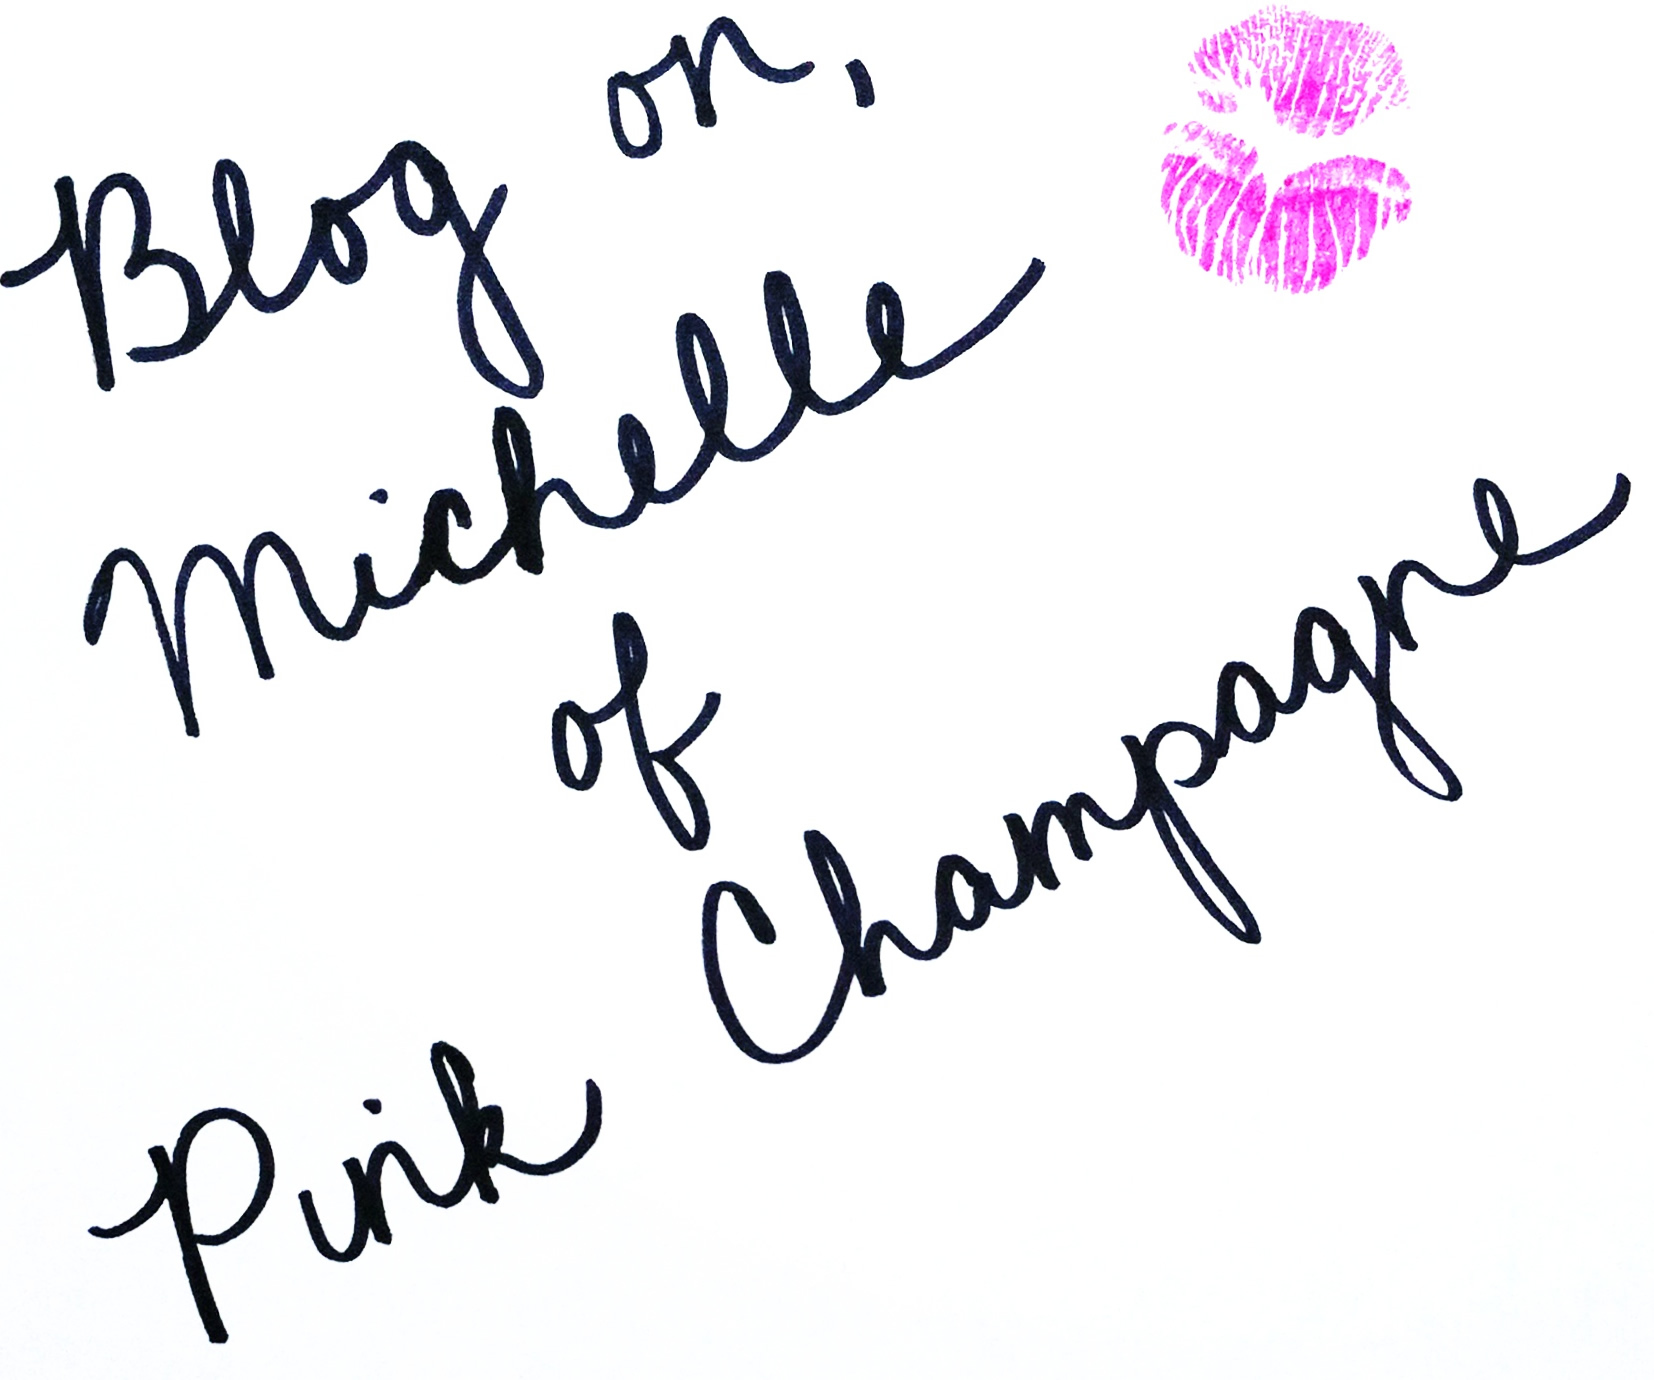 Blog on,
Michelle
of
Pink Champagne